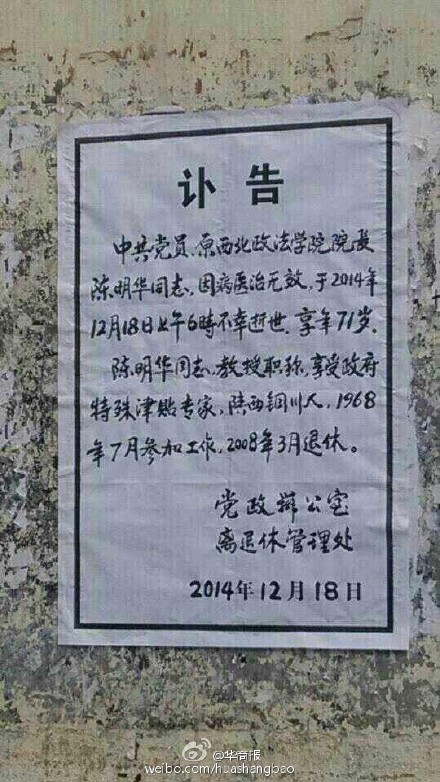 讣告
中共党员、原西北政法学院院长
陈明华同志，因病医治无效，于2014年
12月18日上午6时不幸逝世，享年71岁。
陈明华同志，教授职称，享受政府
特殊津贴专家，陕西铜川人，1968
年7月参加工作，2008年3月退休。
党政辦公室
离退休管理处
2014年12月18日
@华商报
weibo.com/huashangbao